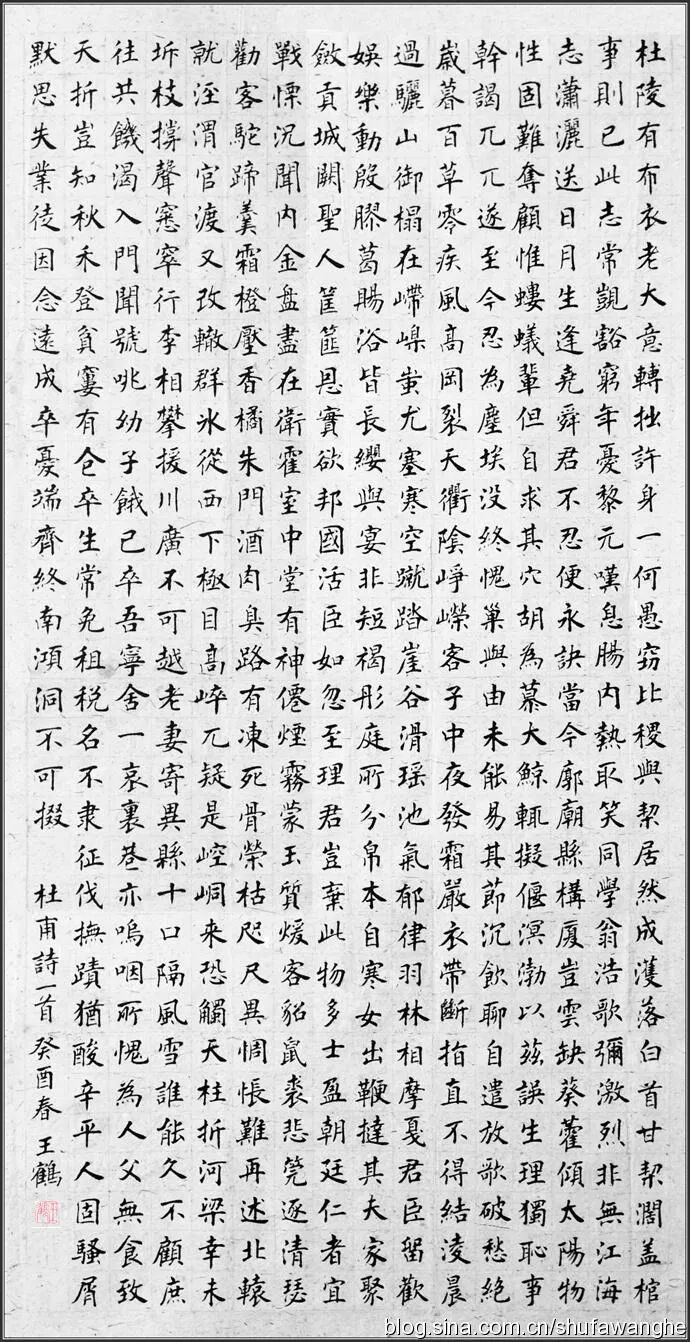 杜陵有布衣老大意轉拙許身一何愚窃比稷與契居然成濩落白首甘契濶盖棺
事則已此志常覬豁窮年憂黎元嘆息腸内熱取笑同學翁浩歌彌激烈非無江海
志瀟灑送日月生逢堯舜君不忍便永訣當今廓廟縣構厦豈雲缺葵藿傾太陽物
性固難奪顧惟螻蟻輩但自求其穴胡為慕大鯨輒擬偃溟渤以茲誤生理獨恥事
幹謁兀兀遂至今忍為塵埃没終愧巢與由未能易其節沉飲聊自遣放歌破愁絕
歲暮百草零疾風高岡裂天衢陰崢嶸客子中夜發霜嚴衣帶斷指直不得結淩晨
過驪山御榻在嵽嵲蚩尤塞寒空蹴踏崖谷滑瑤池氣郁律羽林相摩戛君臣留歡
娛樂動殷膠葛賜浴皆長纓與宴非短褐彤庭所分帛本自寒女出鞭撻其夫家聚
斂貢城闕聖人筐篚恩實欲邦國活臣如忽至理君豈棄此物多士盈朝廷仁者宜
戰慄況聞内金盤盡在衛霍室中堂有神僊煙霧蒙玉質煖客貂鼠裘悲筦逐清瑟
勸客駝蹄羹霜橙壓香橘朱門酒肉臭路有凍死骨榮枯咫尺異惆悵難再述北轅
就涇渭官渡又改轍群冰從西下極目高崒兀疑是崆峒来恐觸天柱折河梁幸未
坼枝撐聲窸窣行李相攀援川廣不可越老妻寄異縣十口隔風雪誰能久不顧庶
往共饑渴入門聞號咷幼子餓已卒吾寧舍一哀裏巷亦嗚咽所愧為人父無食致
夭折豈知秋禾登貧窶有仓卒生常免租税名不隸征伐撫蹟猶酸辛平人固騷屑
默思失業徒因念遠戍卒憂端齊終南澒洞不可掇 杜甫詩一首 癸酉春 王鶴
blog.sina.com.cn/shufawanghe